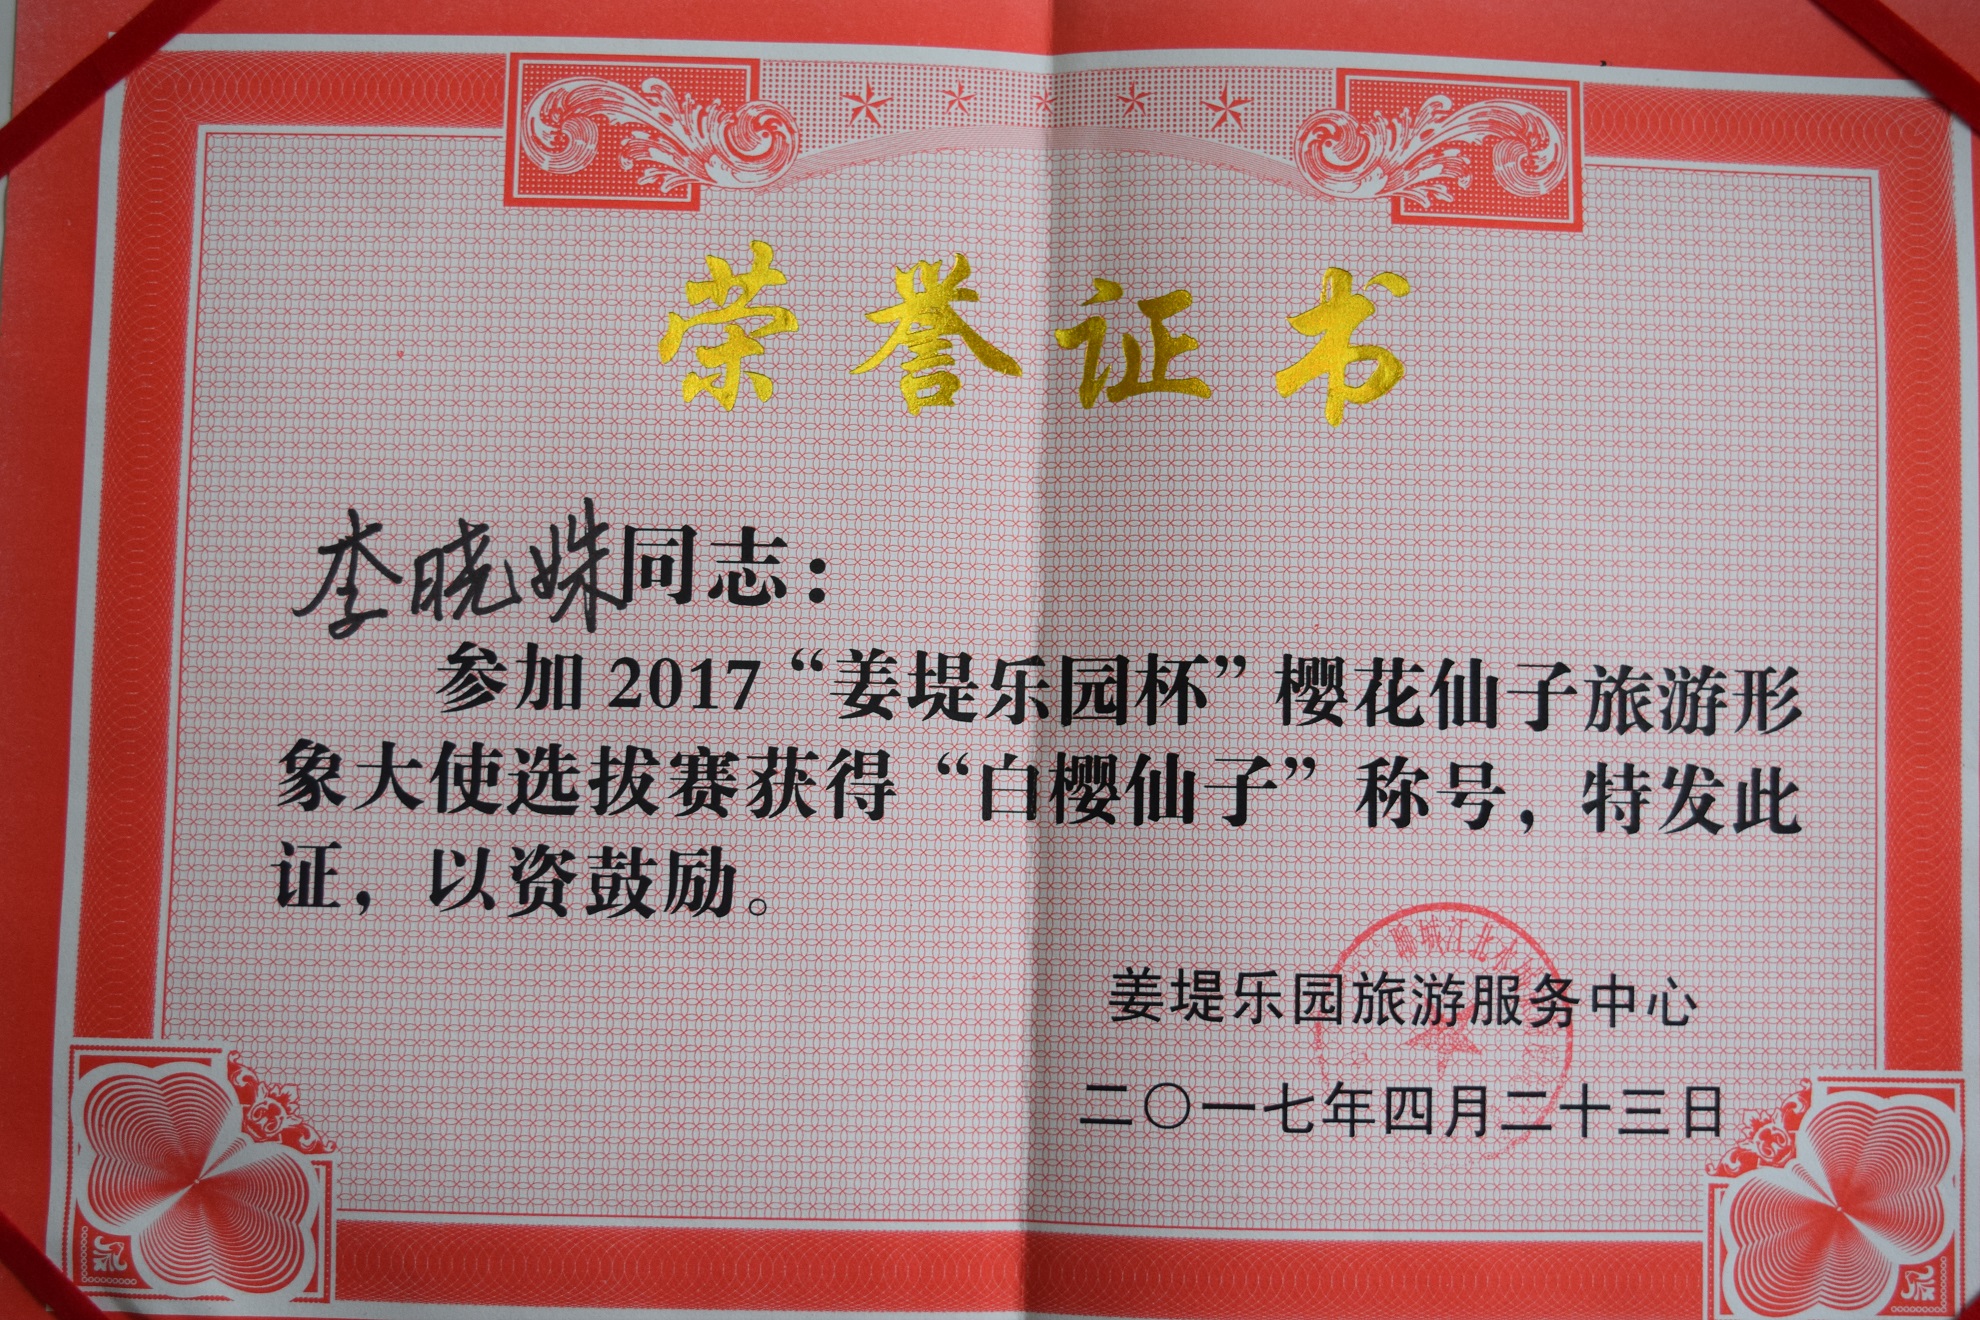 荣誉证书
李晓姝同志：
参加2017“姜堤乐园杯”樱花仙子旅游形
象大使选拔赛获得“白樱仙子”称号，特发此
证，以资鼓励。
聊城江北水城
姜堤乐园旅游服务中心
二〇一七年四月二十三日